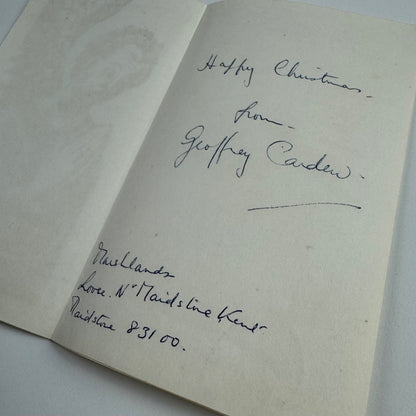 Happy Christmas -
from -
Geoffrey Carden.
Marshlands
Loose. Nr Maidstone Kent
Maidstone 83100.